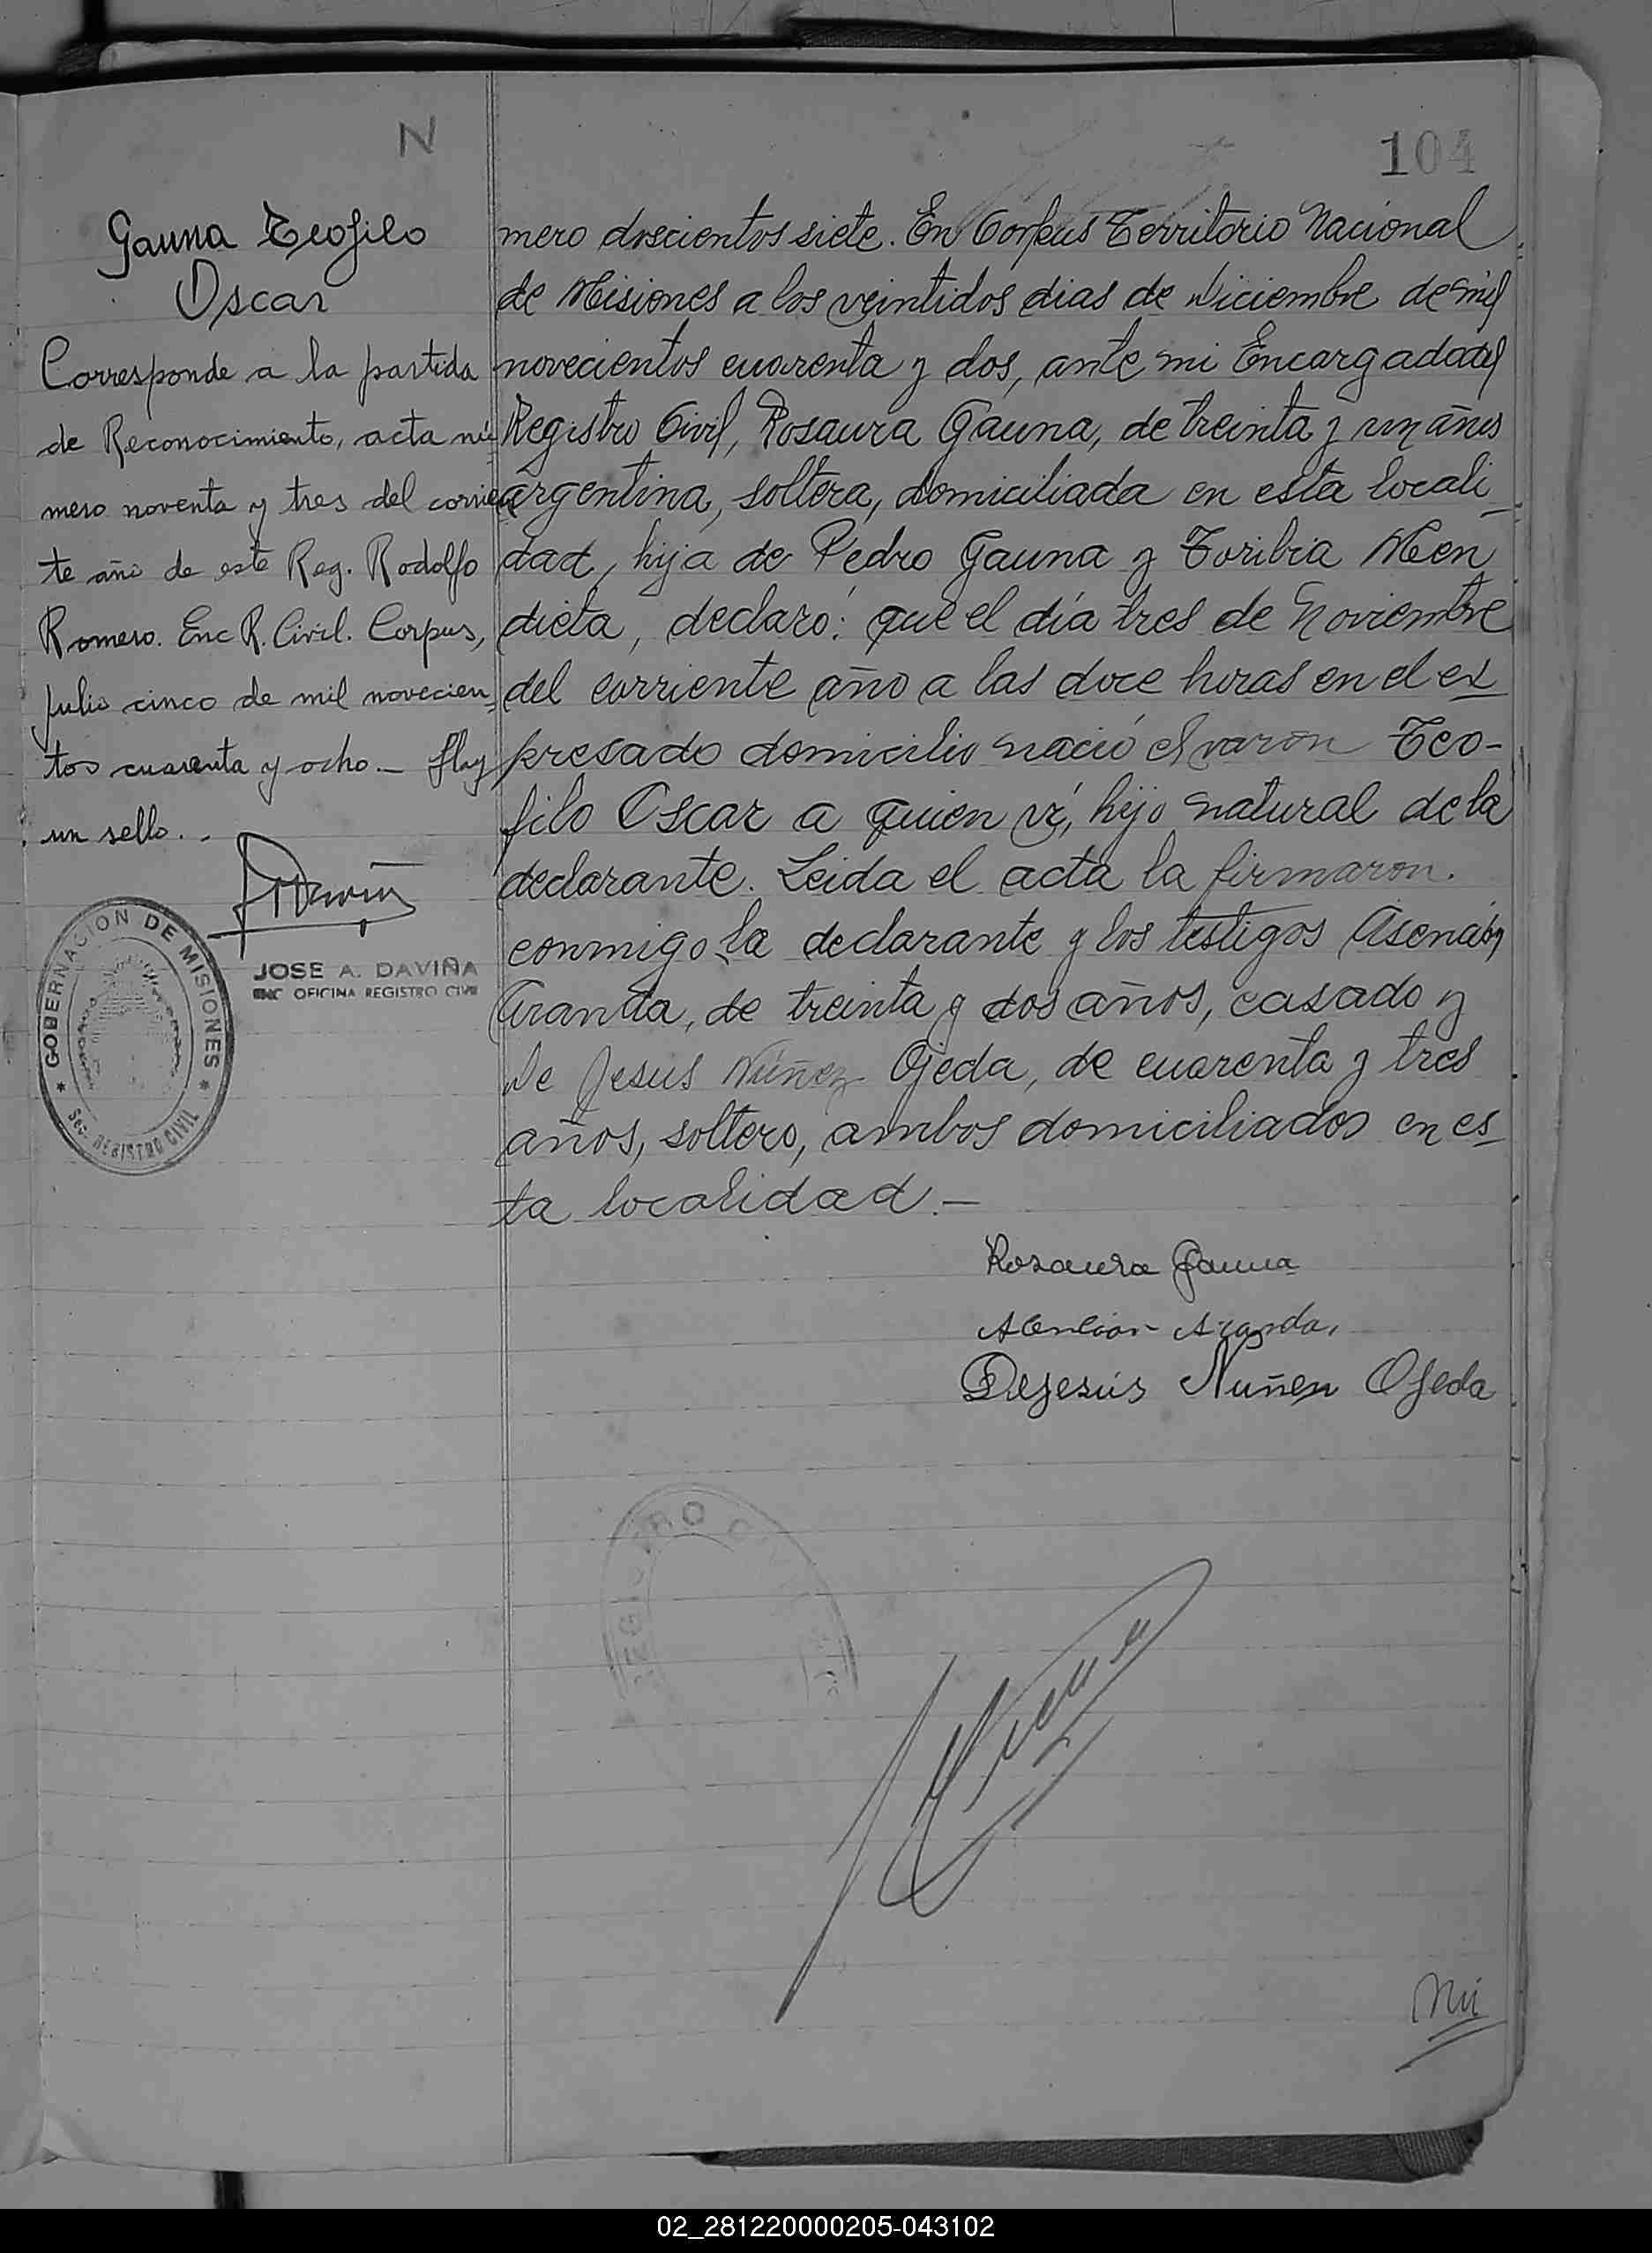 N
104
Gauna Teofilo
Oscar
Corresponde a la partida
de Reconocimiento, acta nú
mero noventa y tres del corrien
te año de este Reg. Rodolfo
Romero. Enc R. Civil. Corpus,
Julio cinco de mil novecien
tos cuarenta y ocho.- Hay
un sello..
JOSE A. DAVIÑA
ENC OFICINA REGISTRO CIVIL
GOBERNACION DE MISIONES
Sec. REGISTRO CIVIL
mero doscientos siete. En Corpus Territorio Nacional
de Misiones a los veintidos dias de Diciembre de mil
novecientos cuarenta y dos, ante mi Encargado del
Registro Civil, Rosaura Gauna, de treinta y un años
argentina, soltera, domiciliada en esta locali
dad, hija de Pedro Gauna y Toribia Men
dieta, declaró: que el día tres de Noviembre
del corriente año a las doce horas en el ex
presado domicilio nació el varon Teo-
filo Oscar a quien ví, hijo natural de la
declarante. Leida el acta la firmaron.
conmigo la declarante y los testigos
Aranda, de treinta y dos años, casado y
De Jesus Núñez Ojeda, de cuarenta y tres
años, soltero, ambos domiciliados en es
ta localidad.-
Rosaura Gauna
Aranda,
Dejesús Nuñez Ojeda
Nú
02_281220000205-043102